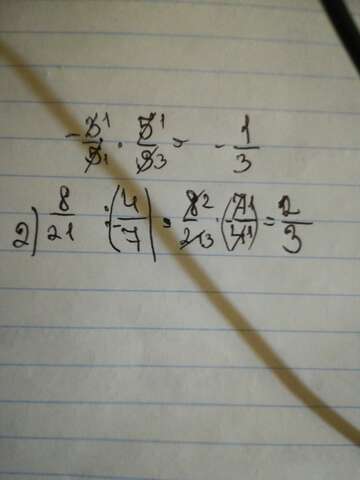 - 3¹/5₁ · 5¹/9₃ = - 1/3
2) 8/21 : (-4/7) = 8²/21₃ · (-7¹/4₁) = 2/3